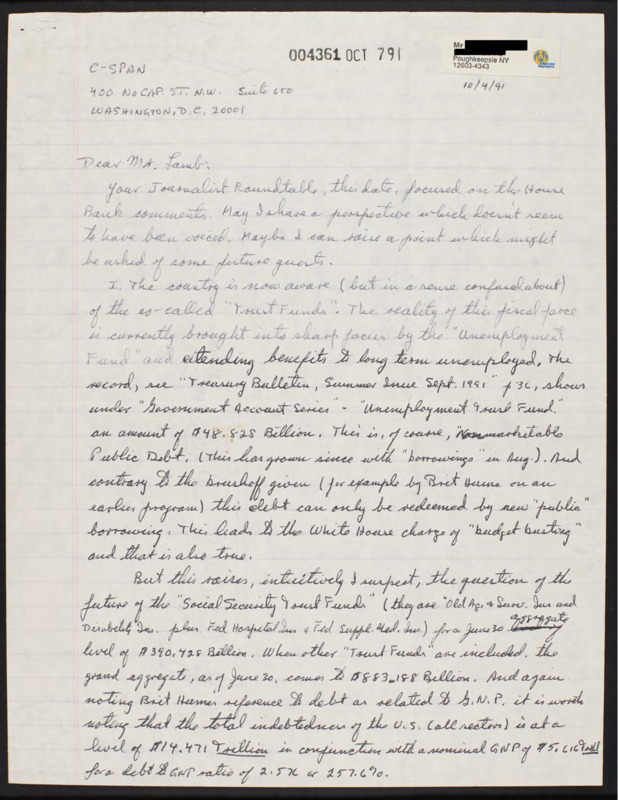 004361 OCT 791
Mr
Poughkeepsie NY
12603-4343
10/4/91
C-SPAN
400 No CAP. ST. N.W. Suite 650
WASHINGTON, D.C. 20001
Dear Mr. Lamb:
Your Journalist Roundtable, this date, focused on the House
Bank comments. May I share a perspective which doesn't seem
to have been voiced. Maybe I can raise a point which might
be asked of some future guests.
I. The country is now aware (but in a sense confused about)
of the so-called "Trust Funds". The reality of this fiscal farce
is currently brought into sharp focus by the "Unemployment
Fund" and extending benefits to long term unemployed. The
record, see "Treasury Bulletin, Summer Issue Sept. 1991" p 36, shows
under "Government Account Series" - "Unemployment Trust Fund"
an amount of $48.525 Billion. This is, of course, Nonmarketable
Public Debt. (This has grown since with "borrowings" in Aug.). And
contrary to the brushoff given (for example by Brit Hume on an
earlier program) this debt can only be redeemed by new "public"
borrowing. This leads to the White House charge of "budget busting"
and that is also true.
But this raises, intuitively I suspect, the question of the
future of the "Social Security Trust Funds" (they are "Old Age & Surv. Ins and
Disability Ins. plus Fed Hospital Ins & Fed Suppl. Med. Ins.) for a June 30 aggregate
level of $390.428 Billion. When other "Trust Funds" are included, the
grand aggregate, as of June 30, comes to $883.188 Billion. And again
noting Brit Humes reference to debt as related to G.N.P. it is worth
noting that the total indebtedness of the U.S. (all sectors) is at a
level of $14.471 trillion in conjunction with a nominal GNP of $5.616 trill
for a debt to GNP ratio of 2.576 or 257.6%.